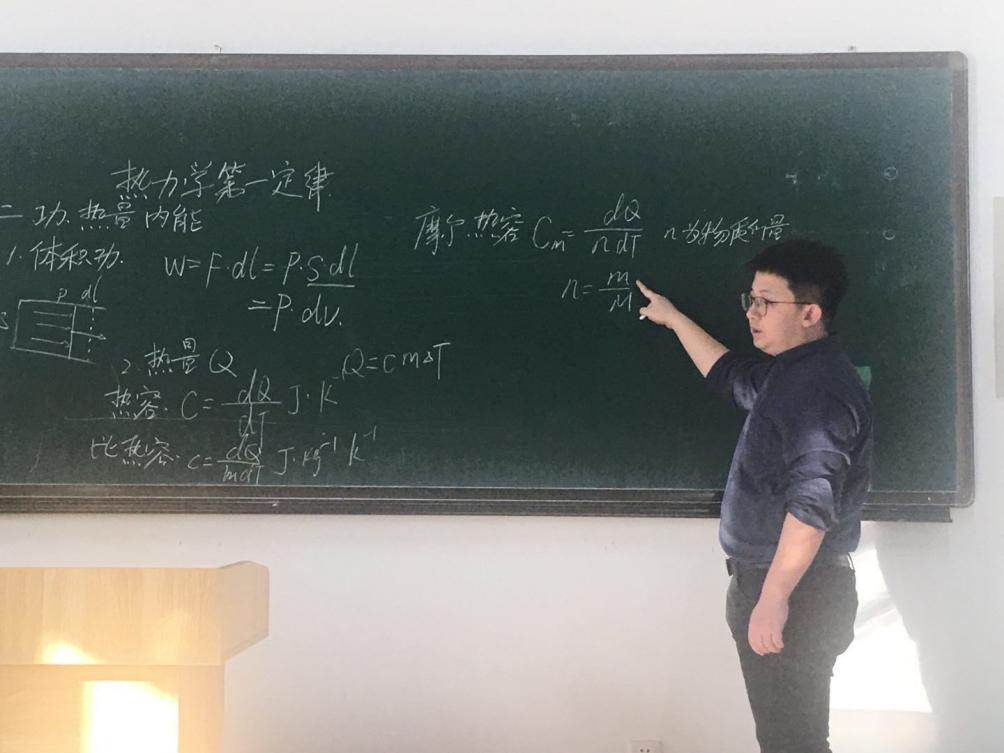 热力学第一定律
二 功.热量内能
1.体积功.
W=F·dl=P·S·dl
=P·dV.
P dl
S
2.热量Q
Q=cmΔT
热容. C=dQ/dT J·K⁻
比热容. c=dQ/mdT J·kg⁻¹ k⁻¹
摩尔热容 Cm=dQ/ndT n为物质的量
n=m/M